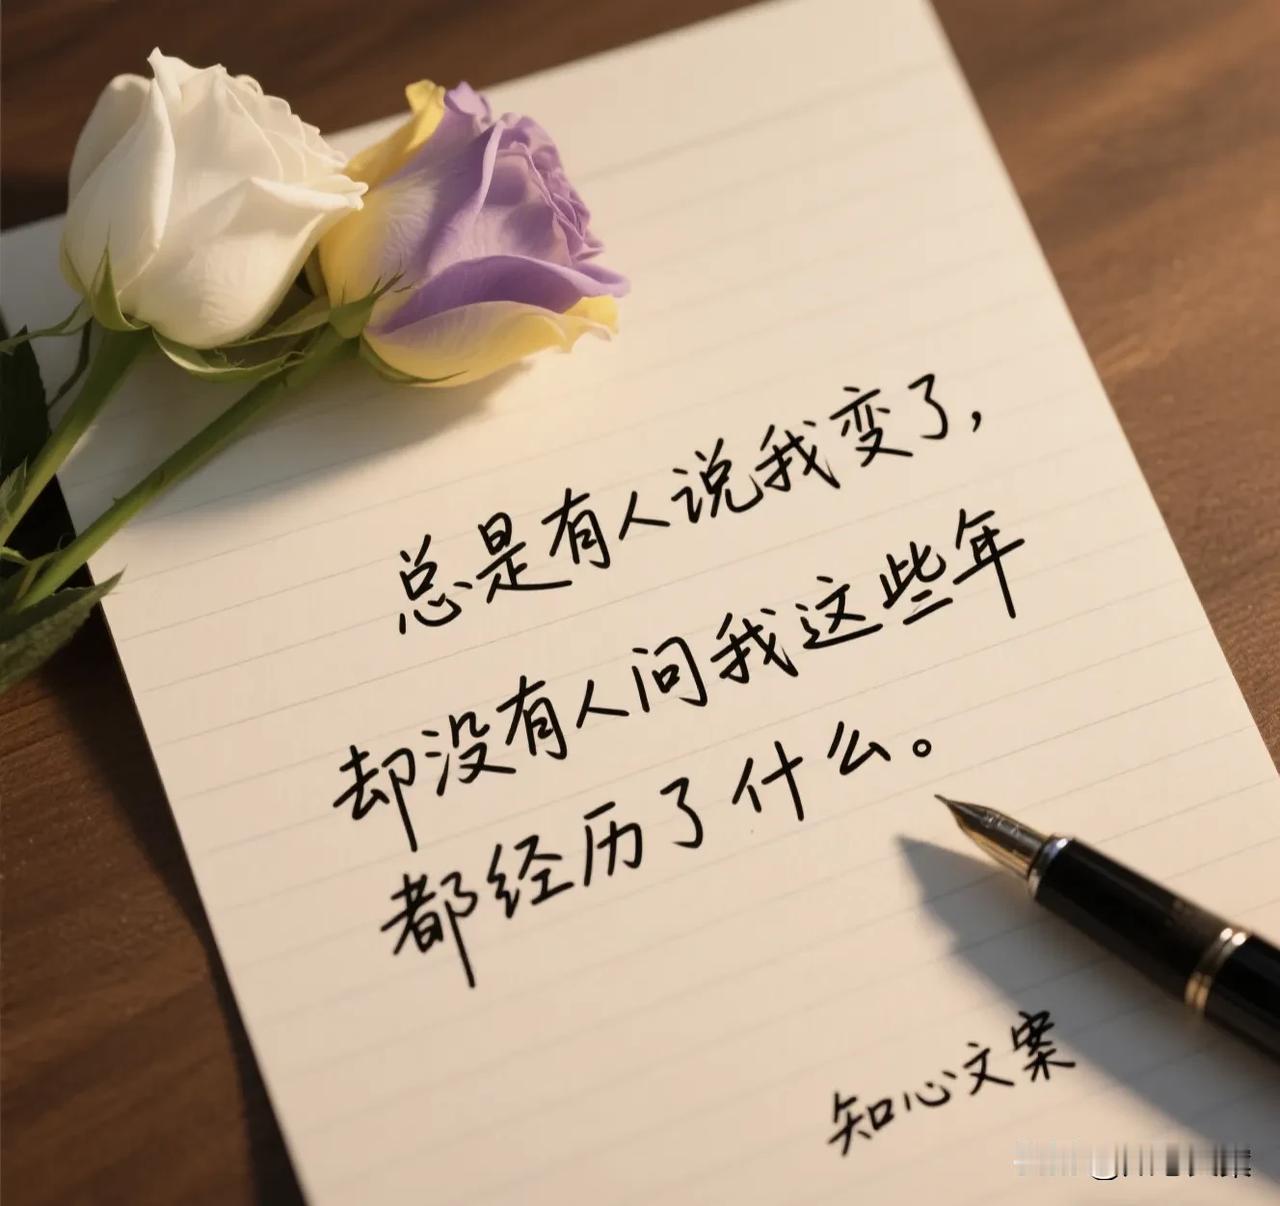 总是有人说我变了,
却没有人问我这些年
都经历了什么。
知心文案